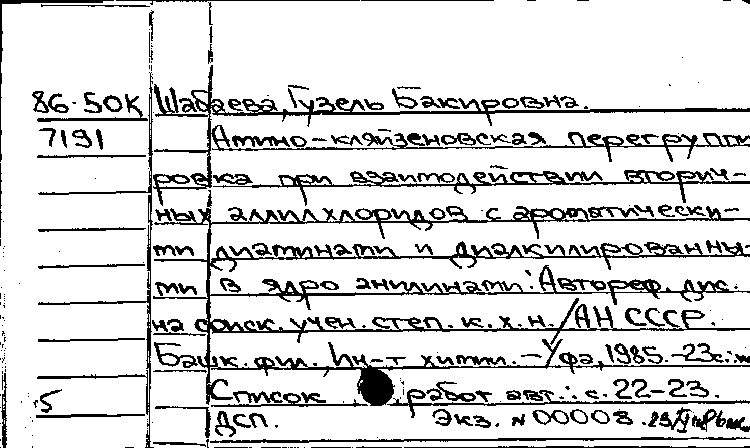 86-50К Шабаева, Гузель Бакировна.
7191 Амино-кляйзеновская перегруппи
ровка при взаимодействии вторич-
ных аллилхлоридов с ароматически-
ми диаминами и диалкилированны-
ми в ядро анилинами: Автореф. дис.
на соиск. учен. степ. к. х. н. / АН СССР.
Башк. фил., Ин-т химии. - Уфа, 1985. - 23с.:
Список работ авт.: с. 22-23.
5
ДСП. Экз. № 00008.